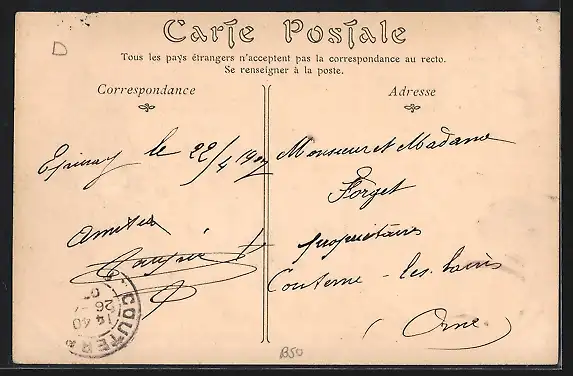 D
Carte Postale
Tous les pays étrangers n'acceptent pas la correspondance au recto.
Se renseigner à la poste.
Correspondance
Adresse
Epinay le 22/4 190
Amitiés
Monsieur et Madame
Forget
propriétaires
Couterne - les. bains
(Orne)
COUTERNE
14 40
26 -4
B50